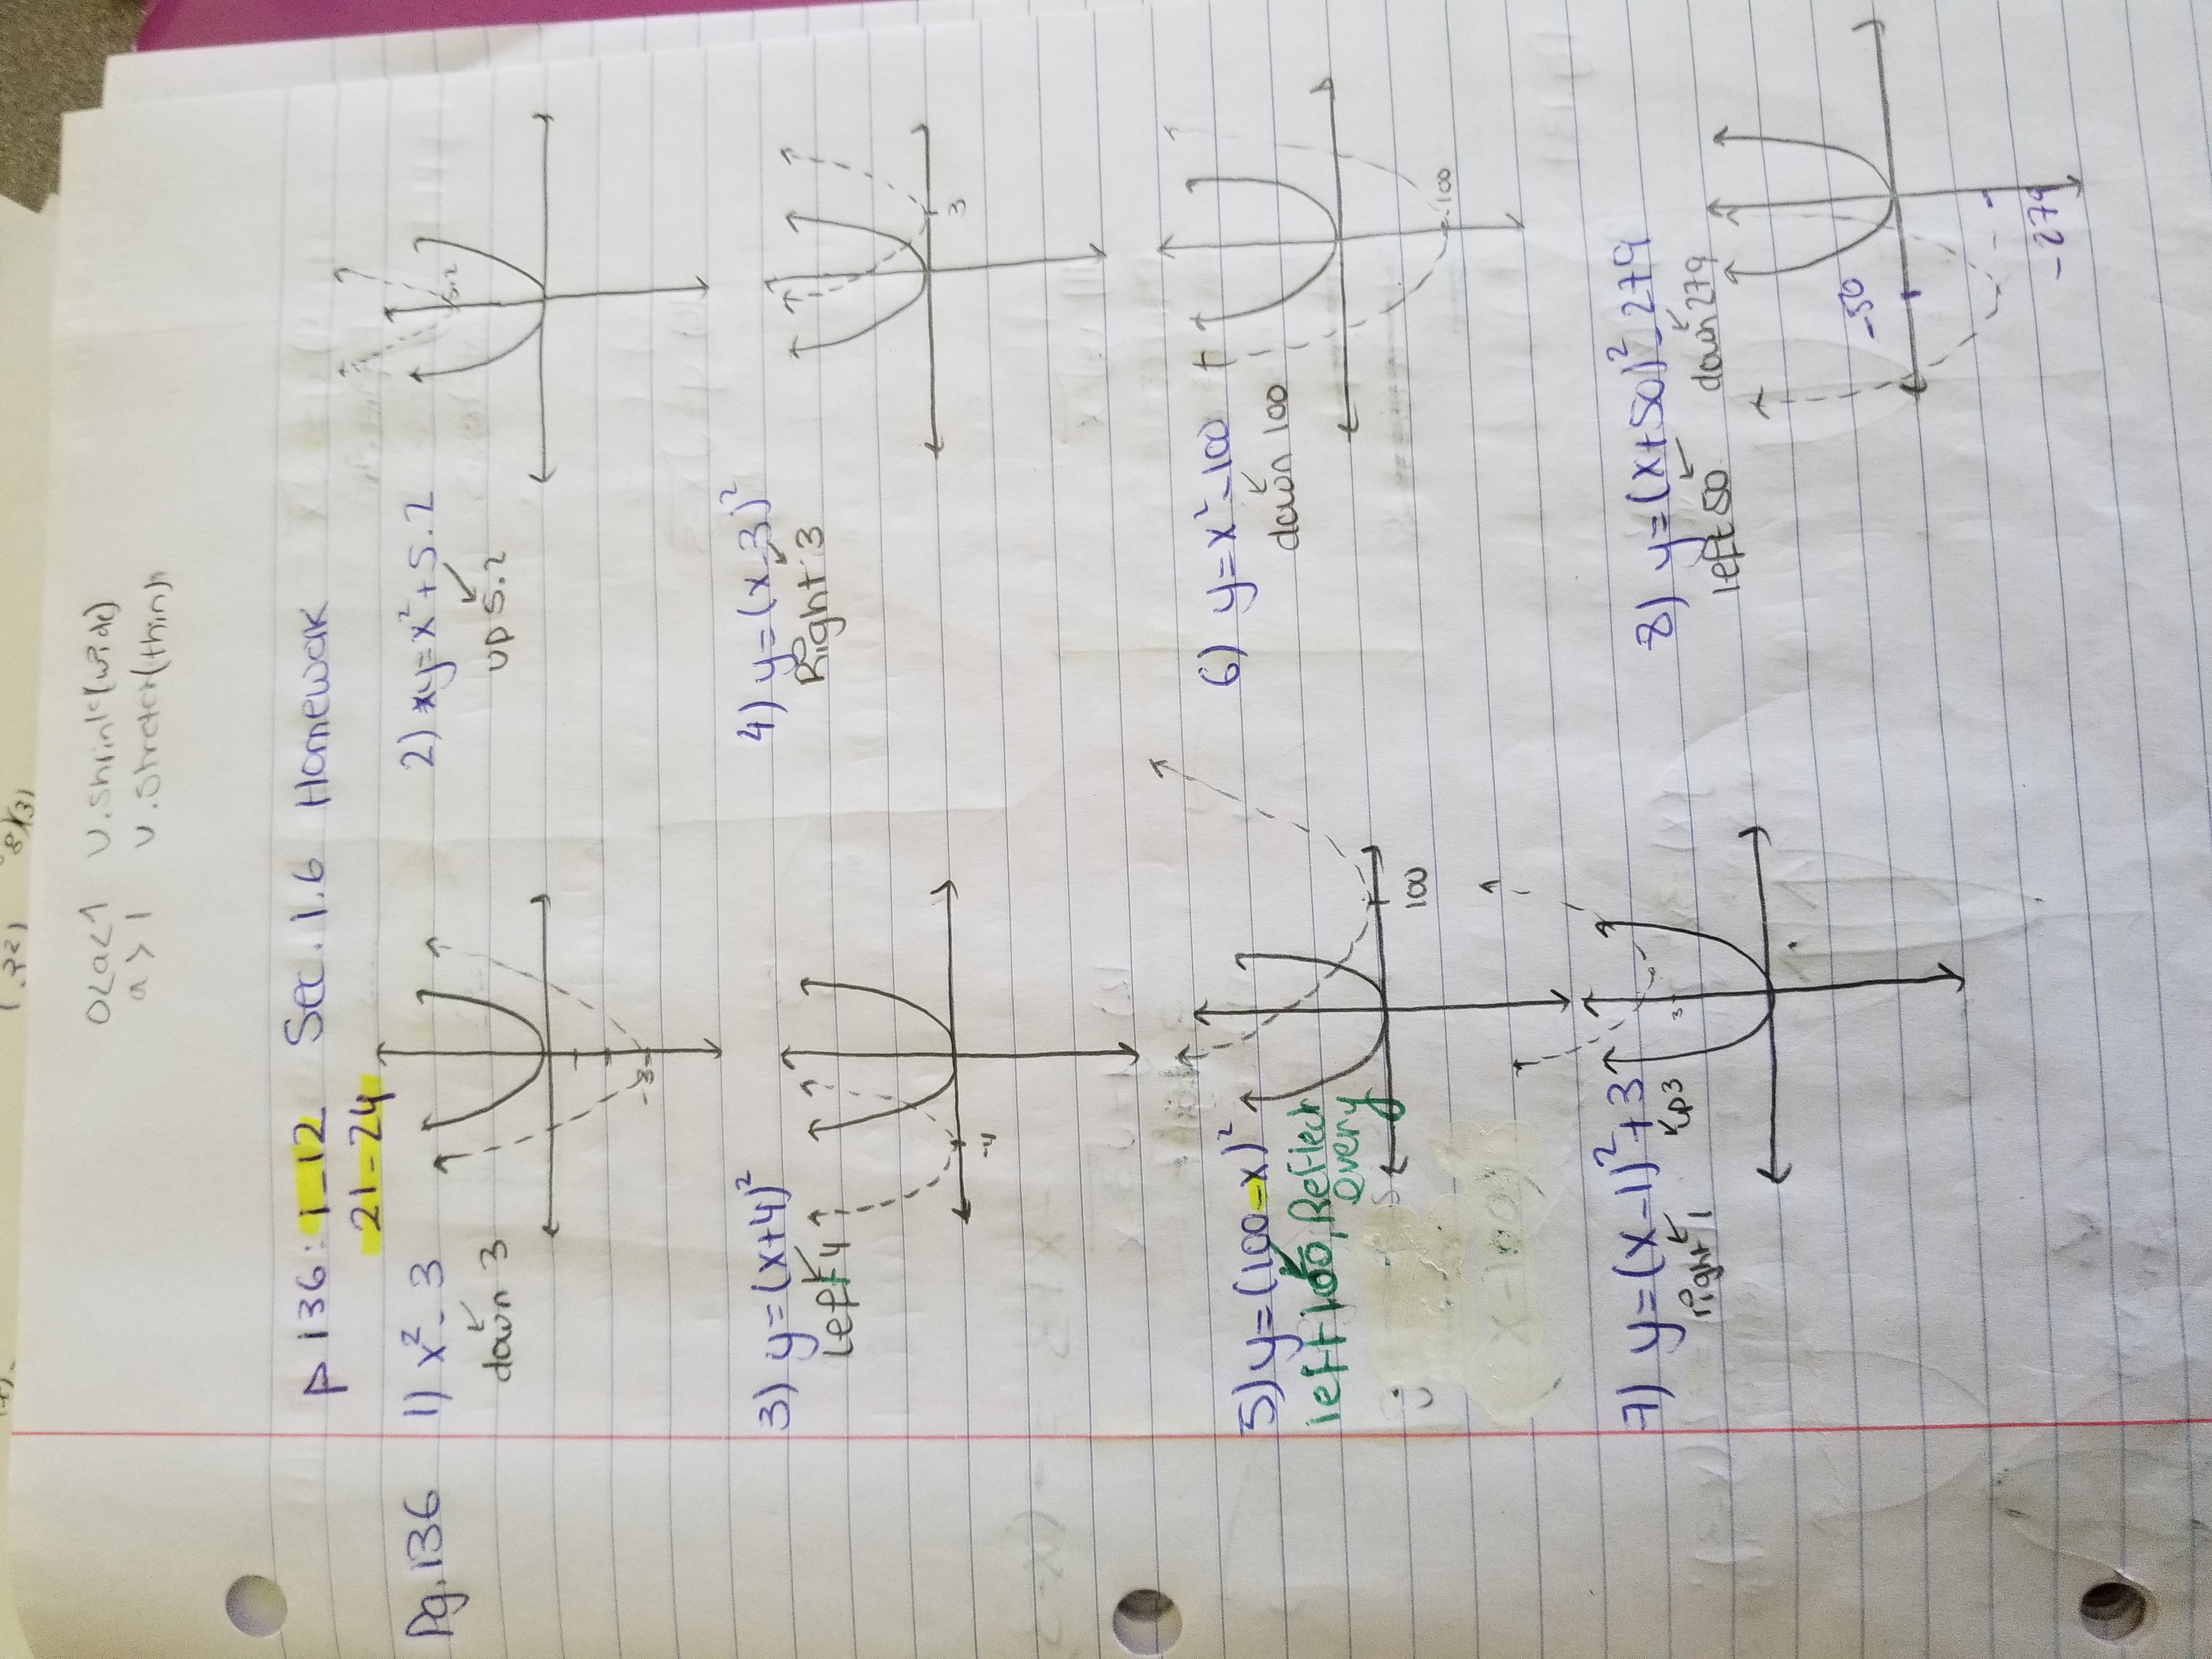 0<a<1 v.shink(wide)
a > 1 v.stretch(thin)
p 136: 1-12 Sec. 1.6 Homewok
21-24
Pg.136 1) x² - 3
down 3
-3
2) y=x²+5.2
up 5.2
5.2
3) y=(x+4)²
Left 4
-4
4) y=(x-3)²
Right 3
3
5) y=(100-x)²
left 100, Reflect
over y
100
6) y=x²-100
down 100
-100
7) y=(x-1)²+3
Right 1 up 3
3
8) y=(x+50)²-279
left 50 down 279
-50
-279